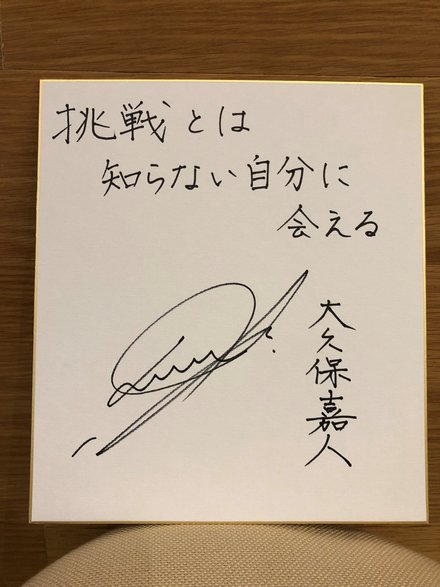 挑戦とは
知らない自分に
会える
大久保嘉人